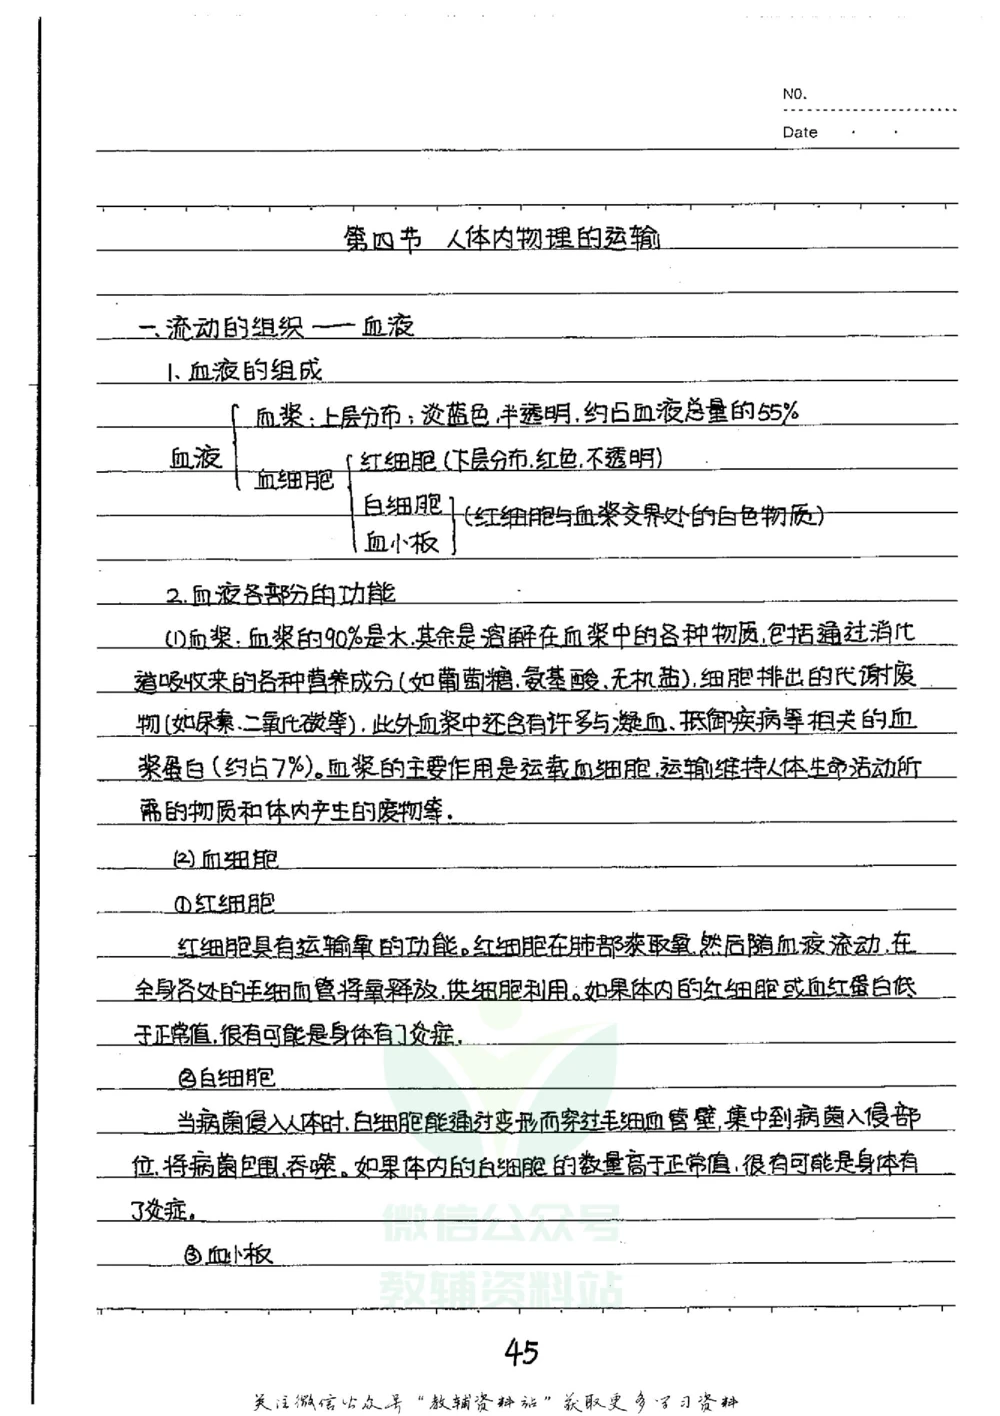 NO.
Date
第四节 人体内物理的运输
一、流动的组织——血液
1、血液的组成
血浆：上层分布；淡蓝色，半透明，约占血液总量的55%
血液
红细胞（下层分布，红色，不透明）
血细胞
白细胞
（红细胞与血浆交界处的白色物质）
血小板
2.血液各部分的功能
(1)血浆：血浆的90%是水，其余是溶解在血浆中的各种物质，包括通过消化
道吸收来的各种营养成分（如葡萄糖、氨基酸、无机盐），细胞排出的代谢废
物（如尿素、二氧化碳等），此外血浆中还含有许多与凝血、抵御疾病等相关的血
浆蛋白（约占7%）。血浆的主要作用是运载血细胞，运输维持人体生命活动所
需的物质和体内产生的废物等。
(2)血细胞
①红细胞
红细胞具有运输氧的功能。红细胞在肺部获取氧，然后随血液流动，在
全身各处的毛细血管将氧释放，供细胞利用。如果体内的红细胞或血红蛋白低
于正常值，很有可能是身体有了炎症。
②白细胞
当病菌侵入人体时，白细胞能通过变形而穿过毛细血管壁，集中到病菌入侵部
位，将病菌包围、吞噬。如果体内的白细胞的数量高于正常值，很有可能是身体有
了炎症。
③血小板
微信公众号
教辅资料站
45
关注微信公众号“教辅资料站”获取更多学习资料